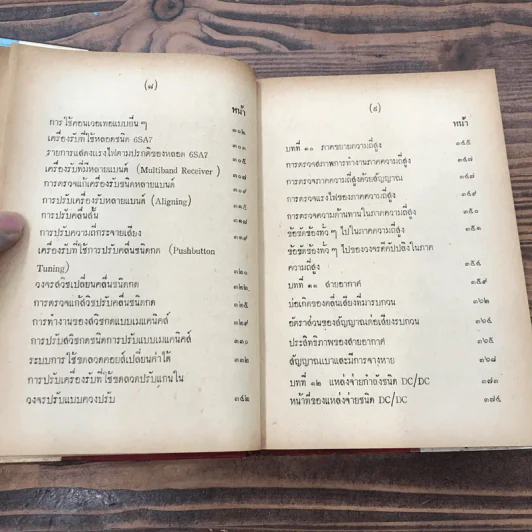 (๘)
หน้า
การใช้คอนเวอเทอแบบอื่น ๆ ๓๐๒
เครื่องรับที่ใช้หลอดชนิด 6SA7 ๓๐๓
รายการแสดงแรงไฟตามปรกติของหลอด 6SA7 ๓๐๕
เครื่องรับที่มีหลายแบนด์ (Multiband Receiver) ๓๐๗
การตรวจแก้เครื่องรับชนิดหลายแบนด์ ๓๐๙
การปรับเครื่องรับหลายแบนด์ (Aligning) ๓๑๕
การปรับคลื่นสั้น ๓๑๗
การปรับความถี่กระจายเสียง ๓๑๙
เครื่องรับที่ใช้การปรับคลื่นชนิดกด (Pushbutton
Tuning) ๓๒๐
วงจรสวิชเปลี่ยนคลื่นชนิดกด ๓๒๓
การตรวจแก้สวิชปรับคลื่นชนิดกด ๓๒๕
การทำงานของสวิชกดแบบเมแคนิคัล ๓๒๙
การปรับสวิชกดชนิดการปรับแบบเมแคนิคัล ๓๓๐
ระบบการใช้ขดลวดคอยล์เปลี่ยนค่าได้ ๓๓๒
การปรับเครื่องรับที่ใช้ขดลวดปรับแกนใน
วงจรปรับแบบควงปรับ ๓๔๒
(๙)
หน้า
บทที่ ๑๐ ภาคขยายความถี่สูง ๓๔๕
การตรวจสภาพการทำงานภาคความถี่สูง ๓๔๗
การตรวจภาคความถี่สูงด้วยสัญญาณ ๓๔๗
การตรวจแรงไฟของภาคความถี่สูง ๓๔๙
การตรวจความต้านทานในภาคความถี่สูง ๓๕๐
ข้อขัดข้องทั่ว ๆ ไปในภาคความถี่สูง ๓๕๑
ข้อขัดข้องทั่ว ๆ ไปของวงจรดีคัปปลิงในภาค
ความถี่สูง ๓๕๔
บทที่ ๑๑ สายอากาศ ๓๕๙
บ่อเกิดของคลื่นเสียงที่มารบกวน ๓๖๒
อัตราส่วนของสัญญาณต่อเสียงรบกวน ๓๖๔
ประสิทธิภาพของสายอากาศ ๓๖๕
สัญญาณเบาและมีการจางหาย ๓๖๘
บทที่ ๑๒ แหล่งจ่ายกำลังชนิด DC/DC ๓๗๓
หน้าที่ของแหล่งจ่ายชนิด DC/DC ๓๗๕